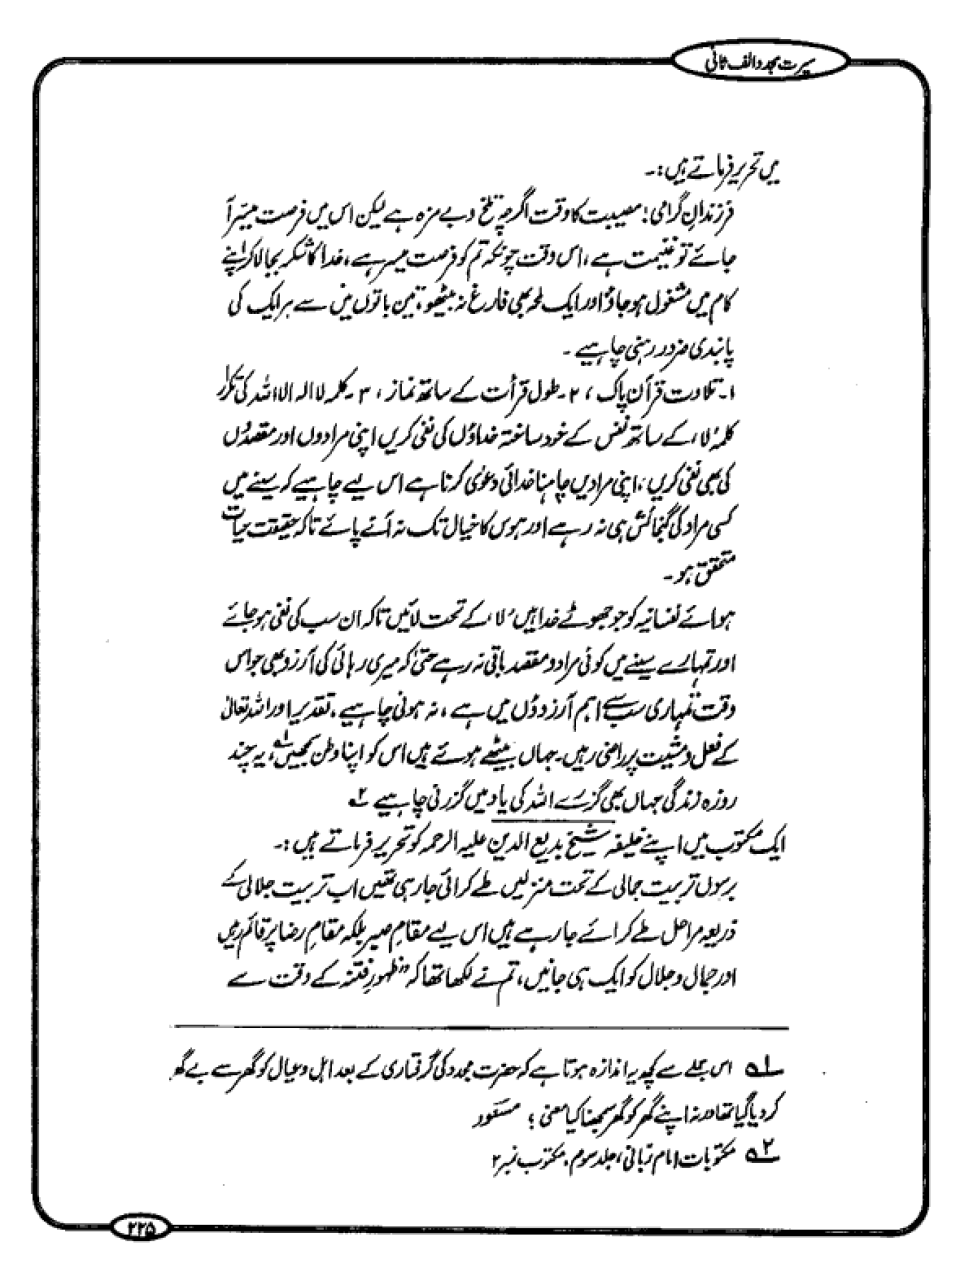 سیرت مجدد الف ثانی
میں تحریر فرماتے ہیں:۔
فرزندانِ گرامی! مصیبت کا وقت اگرچہ تلخ و بے مزہ ہے لیکن اس میں فرصت میسر آ
جائے تو غنیمت ہے، اس وقت چونکہ تم کو فرصت میسر ہے، خدا کا شکر بجا لا کر اپنے
کام میں مشغول ہو جاؤ اور ایک لمحہ بھی فارغ نہ بیٹھو، تین باتوں میں سے ہر ایک کی
پابندی ضرور رہنی چاہیے ۔
۱۔ تلاوت قرآن پاک ، ۲۔ طول قرأت کے ساتھ نماز ، ۳۔ کلمہ لا الہ الا اللہ کی تکرار
کلمۂ 'لا' کے ساتھ نفس کے خود ساختہ خداؤں کی نفی کریں اپنی مرادوں اور مقصدوں
کی بھی نفی کریں، اپنی مرادیں چاہنا خدائی دعویٰ کرنا ہے اس لیے چاہیے کہ سینے میں
کسی مراد کی گنجائش ہی نہ رہے اور ہوس کا خیال تک نہ آنے پائے تاکہ حقیقت حیات
متحقق ہو ۔
ہوائے نفسانیہ کو جو جھوٹے خدا ہیں 'لا' کے تحت لائیں تاکہ ان سب کی نفی ہو جائے
اور تمہارے سینے میں کوئی مراد و مقصد باقی نہ رہے حتیٰ کہ میری رہائی کی آرزو بھی جو اس
وقت تمہاری سب سے اہم آرزوؤں میں ہے، نہ ہونی چاہیے، تقدیر اور اللہ تعالیٰ
کے فعل و مشیت پر راضی رہیں۔ جہاں بیٹھے ہوئے ہیں اس کو اپنا وطن سمجھیں ۱؎ یہ چند
روزہ زندگی جہاں بھی گزرے اللہ کی یاد میں گزرنی چاہیے ۲؎
ایک مکتوب میں اپنے خلیفہ شیخ بدیع الدین علیہ الرحمہ کو تحریر فرماتے ہیں:۔
برسوں تربیت جمالی کے تحت منزلیں طے کرائی جا رہی تھیں اب تربیت جلالی کے
ذریعہ مراحل طے کرائے جا رہے ہیں اس لیے مقامِ صبر بلکہ مقامِ رضا پر قائم رہیں
اور جمال و جلال کو ایک ہی جانیں، تم نے لکھا تھا کہ "ظہورِ فتنہ کے وقت سے
۱؎ اس جملے سے کچھ یہ اندازہ ہوتا ہے کہ حضرت مجدد کی گرفتاری کے بعد اہل و عیال کو گھر سے بے گھر
کر دیا گیا تھا ورنہ اپنے گھر کو گھر سمجھنا کیا معنی ؟ مسعود
۲؎ مکتوبات امام ربانی، جلد سوم، مکتوب نمبر ۲
۲۲۵